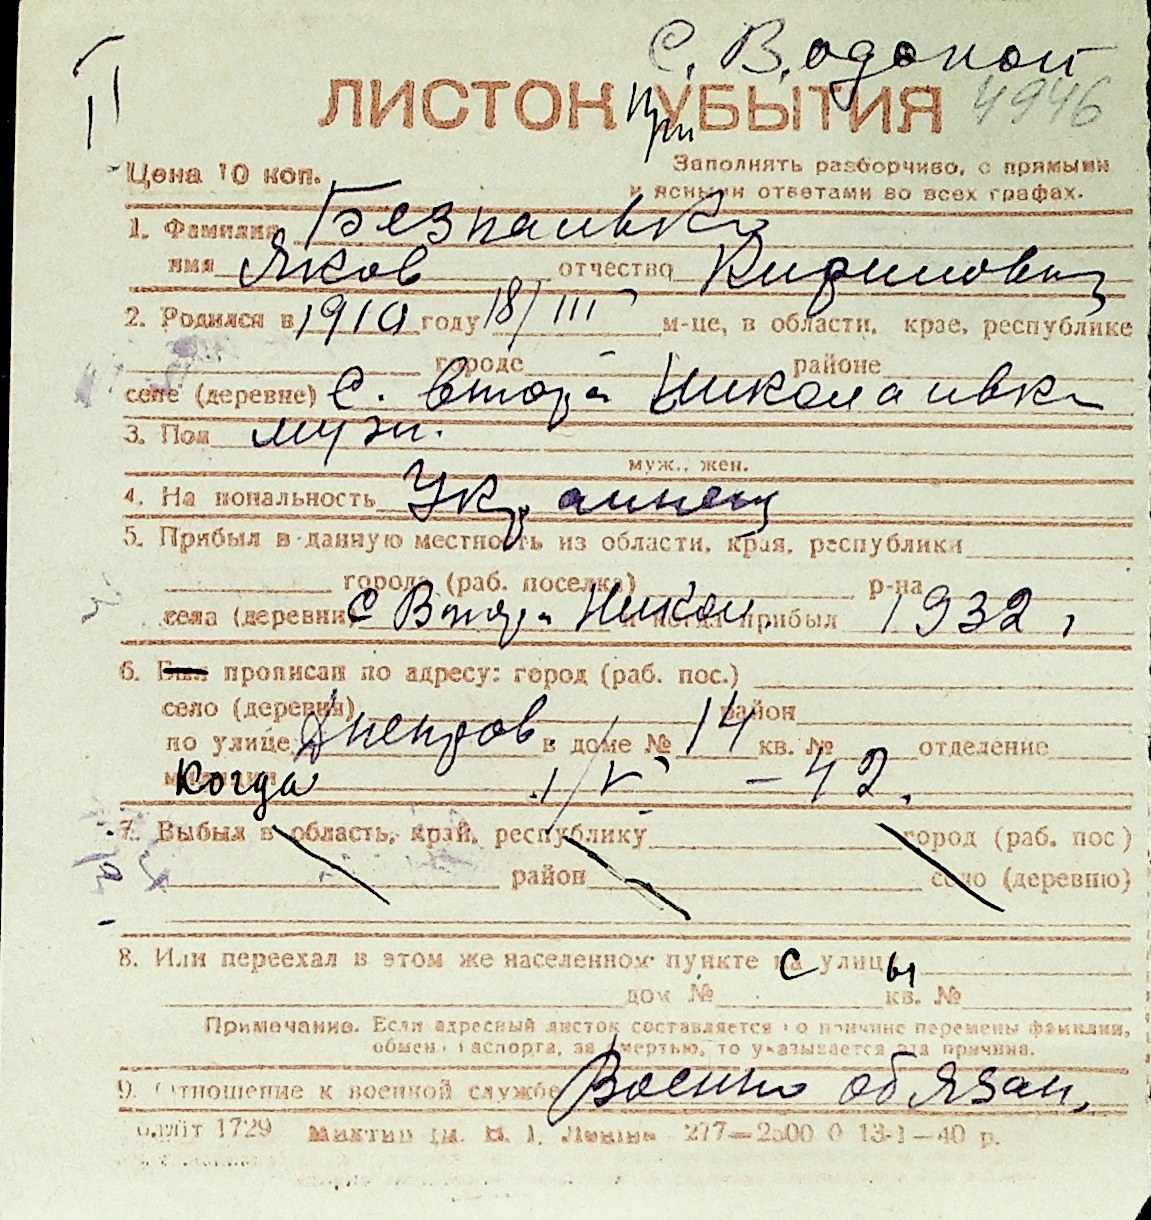 С. Водопой
ЛИСТОК при УБЫТИЯ 4946
Цена 10 коп.
Заполнять разборчиво, с прямыми
и ясными ответами во всех графах.
1. Фамилия Безпалько
имя Яков отчество Кирилович
2. Родился в 1910 году 18/III м-це, в области, крае, республике
городе районе
селе (деревне) с. Втора Николаивка
3. Пол муж.
муж., жен.
4. Национальность Украинец
5. Прибыл в данную местность из области, края, республики
города (раб. поселка) р-на
села (деревни) с Втора Никол. и когда прибыл 1932 г
6. Был прописан по адресу: город (раб. пос.)
село (деревня) район
по улице Днепров в доме № 14 кв. № отделение
милиции Когда 1/V - 42.
7. Выбыл в область, край, республику город (раб. пос)
район село (деревню)
8. Или переехал в этом же населенном пункте с улицы
дом № кв. №
Примечание. Если адресный листок составляется по причине перемены фамилии,
обмена паспорта, за смертью, то указывается эта причина.
9. Отношение к военной службе Военно обязан,
1729 277—2500 0 13-1—40 р.